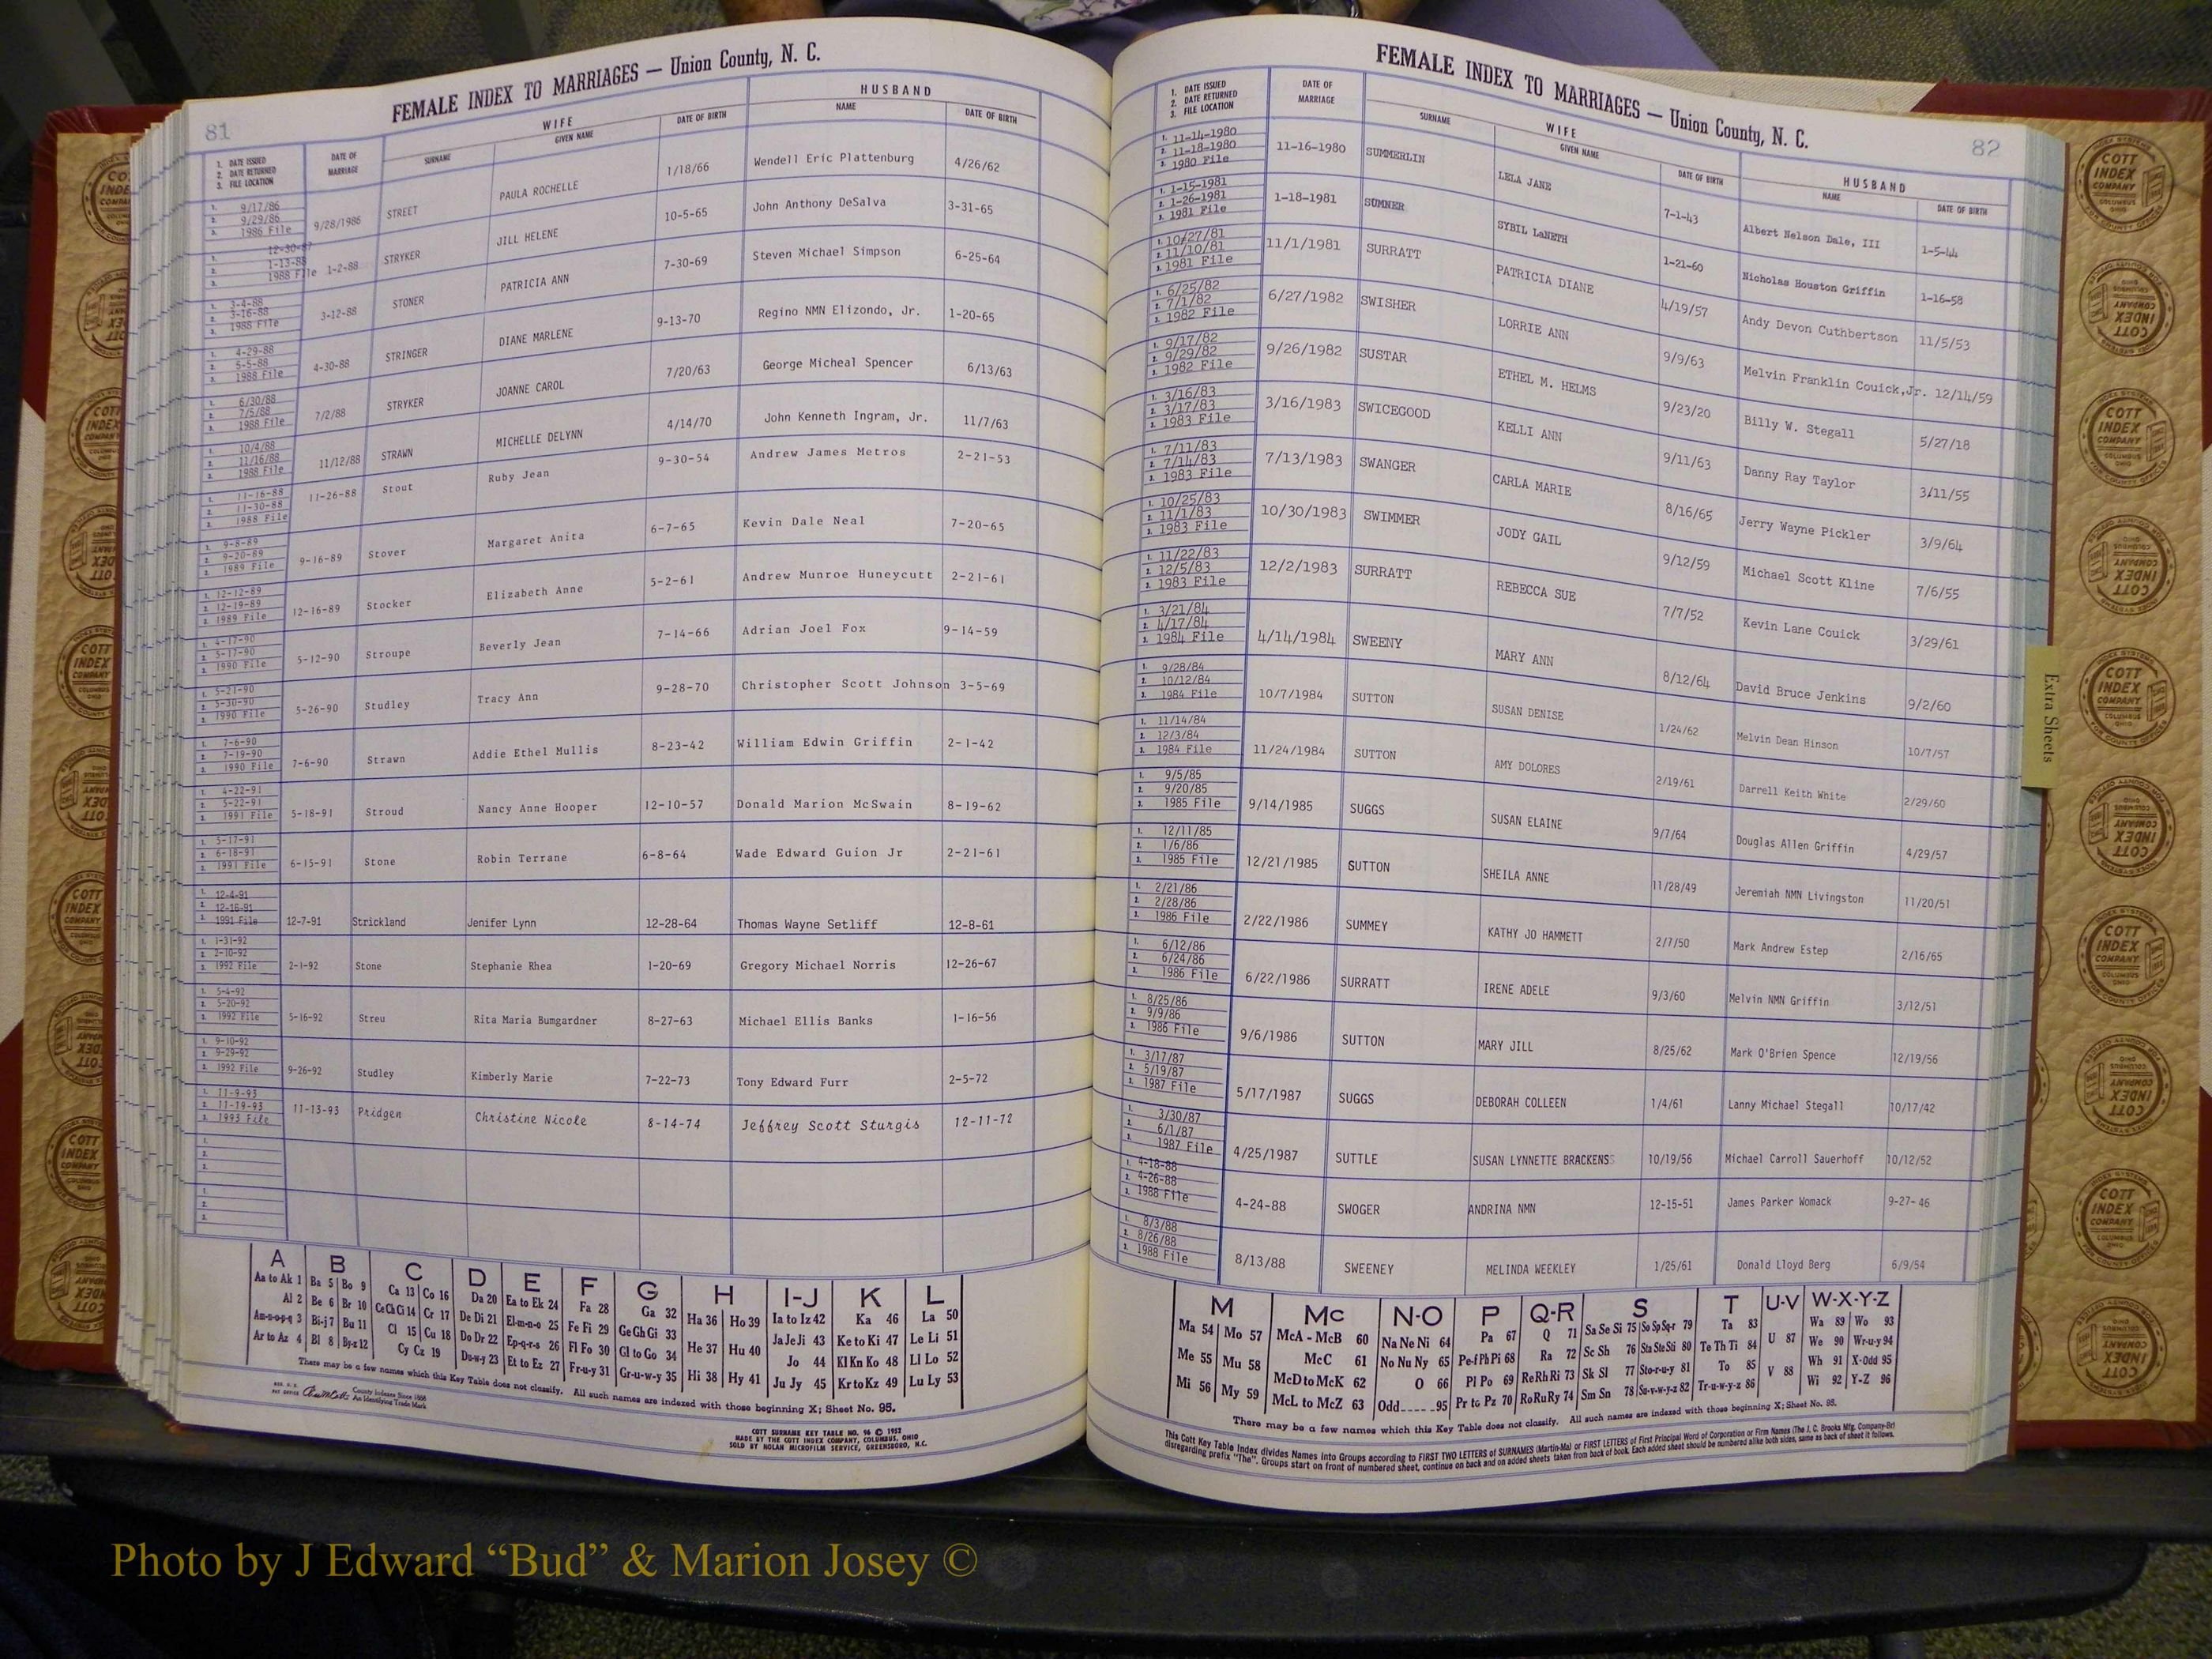 81
FEMALE INDEX TO MARRIAGES — Union County, N. C.
1. DATE ISSUED
2. DATE RETURNED
3. FILE LOCATION
DATE OF MARRIAGE
WIFE
SURNAME GIVEN NAME DATE OF BIRTH
HUSBAND
NAME DATE OF BIRTH
1. 9/17/86
2. 9/29/86
3. 1986 File
9/28/1986 STREET PAULA ROCHELLE 1/18/66 Wendell Eric Plattenburg 4/26/62
1. 12-30-87
2. 1-13-88
3. 1988 File
1-2-88 STRYKER JILL HELENE 10-5-65 John Anthony DeSalva 3-31-65
1. 3-4-88
2. 3-16-88
3. 1988 File
3-12-88 STONER PATRICIA ANN 7-30-69 Steven Michael Simpson 6-25-64
1. 4-29-88
2. 5-5-88
3. 1988 File
4-30-88 STRINGER DIANE MARLENE 9-13-70 Regino NMN Elizondo, Jr. 1-20-65
1. 6/30/88
2. 7/5/88
3. 1988 File
7/2/88 STRYKER JOANNE CAROL 7/20/63 George Micheal Spencer 6/13/63
1. 10/4/88
2. 11/16/88
3. 1988 File
11/12/88 STRAWN MICHELLE DELYNN 4/14/70 John Kenneth Ingram, Jr. 11/7/63
1. 11-16-88
2. 11-30-88
3. 1988 File
11-26-88 Stout Ruby Jean 9-30-54 Andrew James Metros 2-21-53
1. 9-8-89
2. 9-20-89
3. 1989 File
9-16-89 Stover Margaret Anita 6-7-65 Kevin Dale Neal 7-20-65
1. 12-12-89
2. 12-19-89
3. 1989 File
12-16-89 Stocker Elizabeth Anne 5-2-61 Andrew Munroe Huneycutt 2-21-61
1. 4-17-90
2. 5-17-90
3. 1990 File
5-12-90 Stroupe Beverly Jean 7-14-66 Adrian Joel Fox 9-14-59
1. 5-21-90
2. 5-30-90
3. 1990 File
5-26-90 Studley Tracy Ann 9-28-70 Christopher Scott Johnson 3-5-69
1. 7-6-90
2. 7-19-90
3. 1990 File
7-6-90 Strawn Addie Ethel Mullis 8-23-42 William Edwin Griffin 2-1-42
1. 4-22-91
2. 5-22-91
3. 1991 File
5-18-91 Stroud Nancy Anne Hooper 12-10-57 Donald Marion McSwain 8-19-62
1. 5-17-91
2. 6-18-91
3. 1991 File
6-15-91 Stone Robin Terrane 6-8-64 Wade Edward Guion Jr 2-21-61
1. 12-4-91
2. 12-16-91
3. 1991 File
12-7-91 Strickland Jenifer Lynn 12-28-64 Thomas Wayne Setliff 12-8-61
1. 1-31-92
2. 2-10-92
3. 1992 File
2-1-92 Stone Stephanie Rhea 1-20-69 Gregory Michael Norris 12-26-67
1. 5-4-92
2. 5-20-92
3. 1992 File
5-16-92 Streu Rita Maria Bumgardner 8-27-63 Michael Ellis Banks 1-16-56
1. 9-10-92
2. 9-29-92
3. 1992 File
9-26-92 Studley Kimberly Marie 7-22-73 Tony Edward Furr 2-5-72
1. 11-9-93
2. 11-19-93
3. 1993 File
11-13-93 Pridgen Christine Nicole 8-14-74 Jeffrey Scott Sturgis 12-11-72
1.
2.
3.
1.
2.
3.
A B C D E F G H I-J K L
Aa to Ak 1 Ba 5 Bo 9 Ca 13 Co 16 Da 20 Ea to Ek 24 Fa 28 Ga 32 Ha 36 Ho 39 Ia to Iz 42 Ka 46 La 50
Al 2 Be 6 Br 10 Ce Ch Ci 14 Cr 17 De Di 21 El-m-n-o 25 Fe Fi 29 Ge Gh Gi 33 He 37 Hu 40 Ja Je Ji 43 Ke to Ki 47 Le Li 51
Am-n-o-p-q 3 Bi-j 7 Bu 11 Cl 15 Cu 18 Do Dr 22 Ep-q-r-s 26 Fl Fo 30 Gl to Go 34 Hi 38 Hy 41 Jo 44 Kl Kn Ko 48 Ll Lo 52
Ar to Az 4 Bl 8 By-z 12 Cy Cz 19 Du-w-y 23 Et to Ez 27 Fr-u-y 31 Gr-u-w-y 35 Ju Jy 45 Kr to Kz 49 Lu Ly 53
There may be a few names which this Key Table does not classify. All such names are indexed with those beginning X; Sheet No. 95.
County Indexes Since 1888
An Identifying Trade Mark
COTT SURNAME KEY TABLE NO. 96 © 1952
MADE BY THE COTT INDEX COMPANY, COLUMBUS, OHIO
SOLD BY NOLAN MICROFILM SERVICE, GREENSBORO, N.C.
82
FEMALE INDEX TO MARRIAGES — Union County, N. C.
1. DATE ISSUED
2. DATE RETURNED
3. FILE LOCATION
DATE OF MARRIAGE
WIFE
SURNAME GIVEN NAME DATE OF BIRTH
HUSBAND
NAME DATE OF BIRTH
1. 11-14-1980
2. 11-18-1980
3. 1980 File
11-16-1980 SUMMERLIN LELA JANE 7-1-43 Albert Nelson Dale, III 1-5-44
1. 1-15-1981
2. 1-26-1981
3. 1981 File
1-18-1981 SUMNER SYBIL LaNETH 1-21-60 Nicholas Houston Griffin 1-16-58
1. 10/27/81
2. 11/10/81
3. 1981 File
11/1/1981 SURRATT PATRICIA DIANE 4/19/57 Andy Devon Cuthbertson 11/5/53
1. 6/25/82
2. 7/1/82
3. 1982 File
6/27/1982 SWISHER LORRIE ANN 9/9/63 Melvin Franklin Couick,Jr. 12/14/59
1. 9/17/82
2. 9/29/82
3. 1982 File
9/26/1982 SUSTAR ETHEL M. HELMS 9/23/20 Billy W. Stegall 5/27/18
1. 3/16/83
2. 3/17/83
3. 1983 File
3/16/1983 SWICEGOOD KELLI ANN 9/11/63 Danny Ray Taylor 3/11/55
1. 7/11/83
2. 7/14/83
3. 1983 File
7/13/1983 SWANGER CARLA MARIE 8/16/65 Jerry Wayne Pickler 3/9/64
1. 10/25/83
2. 11/1/83
3. 1983 File
10/30/1983 SWIMMER JODY GAIL 9/12/59 Michael Scott Kline 7/6/55
1. 11/22/83
2. 12/5/83
3. 1983 File
12/2/1983 SURRATT REBECCA SUE 7/7/52 Kevin Lane Couick 3/29/61
1. 3/21/84
2. 4/17/84
3. 1984 File
4/14/1984 SWEENY MARY ANN 8/12/64 David Bruce Jenkins 9/2/60
1. 9/28/84
2. 10/12/84
3. 1984 File
10/7/1984 SUTTON SUSAN DENISE 1/24/62 Melvin Dean Hinson 10/7/57
1. 11/14/84
2. 12/3/84
3. 1984 File
11/24/1984 SUTTON AMY DOLORES 2/19/61 Darrell Keith White 2/29/60
1. 9/5/85
2. 9/20/85
3. 1985 File
9/14/1985 SUGGS SUSAN ELAINE 9/7/64 Douglas Allen Griffin 4/29/57
1. 12/11/85
2. 1/6/86
3. 1985 File
12/21/1985 SUTTON SHEILA ANNE 11/28/49 Jeremiah NMN Livingston 11/20/51
1. 2/21/86
2. 2/28/86
3. 1986 File
2/22/1986 SUMMEY KATHY JO HAMMETT 2/7/50 Mark Andrew Estep 2/16/65
1. 6/12/86
2. 6/24/86
3. 1986 File
6/22/1986 SURRATT IRENE ADELE 9/3/60 Melvin NMN Griffin 3/12/51
1. 8/25/86
2. 9/9/86
3. 1986 File
9/6/1986 SUTTON MARY JILL 8/25/62 Mark O'Brien Spence 12/19/56
1. 3/17/87
2. 5/19/87
3. 1987 File
5/17/1987 SUGGS DEBORAH COLLEEN 1/4/61 Lanny Michael Stegall 10/17/42
1. 3/30/87
2. 6/1/87
3. 1987 File
4/25/1987 SUTTLE SUSAN LYNNETTE BRACKENS 10/19/56 Michael Carroll Sauerhoff 10/12/52
1. 4-18-88
2. 4-26-88
3. 1988 File
4-24-88 SWOGER ANDRINA NMN 12-15-51 James Parker Womack 9-27-46
1. 8/3/88
2. 8/26/88
3. 1988 File
8/13/88 SWEENEY MELINDA WEEKLEY 1/25/61 Donald Lloyd Berg 6/9/54
M Mc N-O P Q-R S T U-V W-X-Y-Z
Ma 54 Mo 57 McA - McB 60 Na Ne Ni 64 Pa 67 Q 71 Sa Se Si 75 So Sp Sq-r 79 Ta 83 U 87 Wa 89 Wo 93
Me 55 Mu 58 McC 61 No Nu Ny 65 Pe-f Ph Pi 68 Ra 72 Sc Sh 76 Sta Ste Sti 80 Te Th Ti 84 V 88 We 90 Wr-u-y 94
Mi 56 My 59 McD to McK 62 O 66 Pl Po 69 Re Rh Ri 73 Sk Sl 77 Sto-r-u-y 81 To 85 Wh 91 X-Odd 95
McL to McZ 63 Odd 95 Pr to Pz 70 Ro Ru Ry 74 Sm Sn 78 Su-v-w-y-z 82 Tr-u-w-y-z 86 Wi 92 Y-Z 96
There may be a few names which this Key Table does not classify. All such names are indexed with those beginning X; Sheet No. 95.
This Cott Key Table Index divides Names into Groups according to FIRST TWO LETTERS of SURNAMES (Martin-Ma) or FIRST LETTERS of First Principal Word of Corporation or Firm Names (The J. C. Brooks Mfg. Company-Br)
disregarding prefix "The". Groups start on front of numbered sheet, continue on back and on added sheets taken from back of book. Each added sheet should be numbered alike both sides, same as back of sheet it follows.
Extra Sheets
COTT INDEX COMPANY COLUMBUS OHIO
Photo by J Edward “Bud” & Marion Josey ©